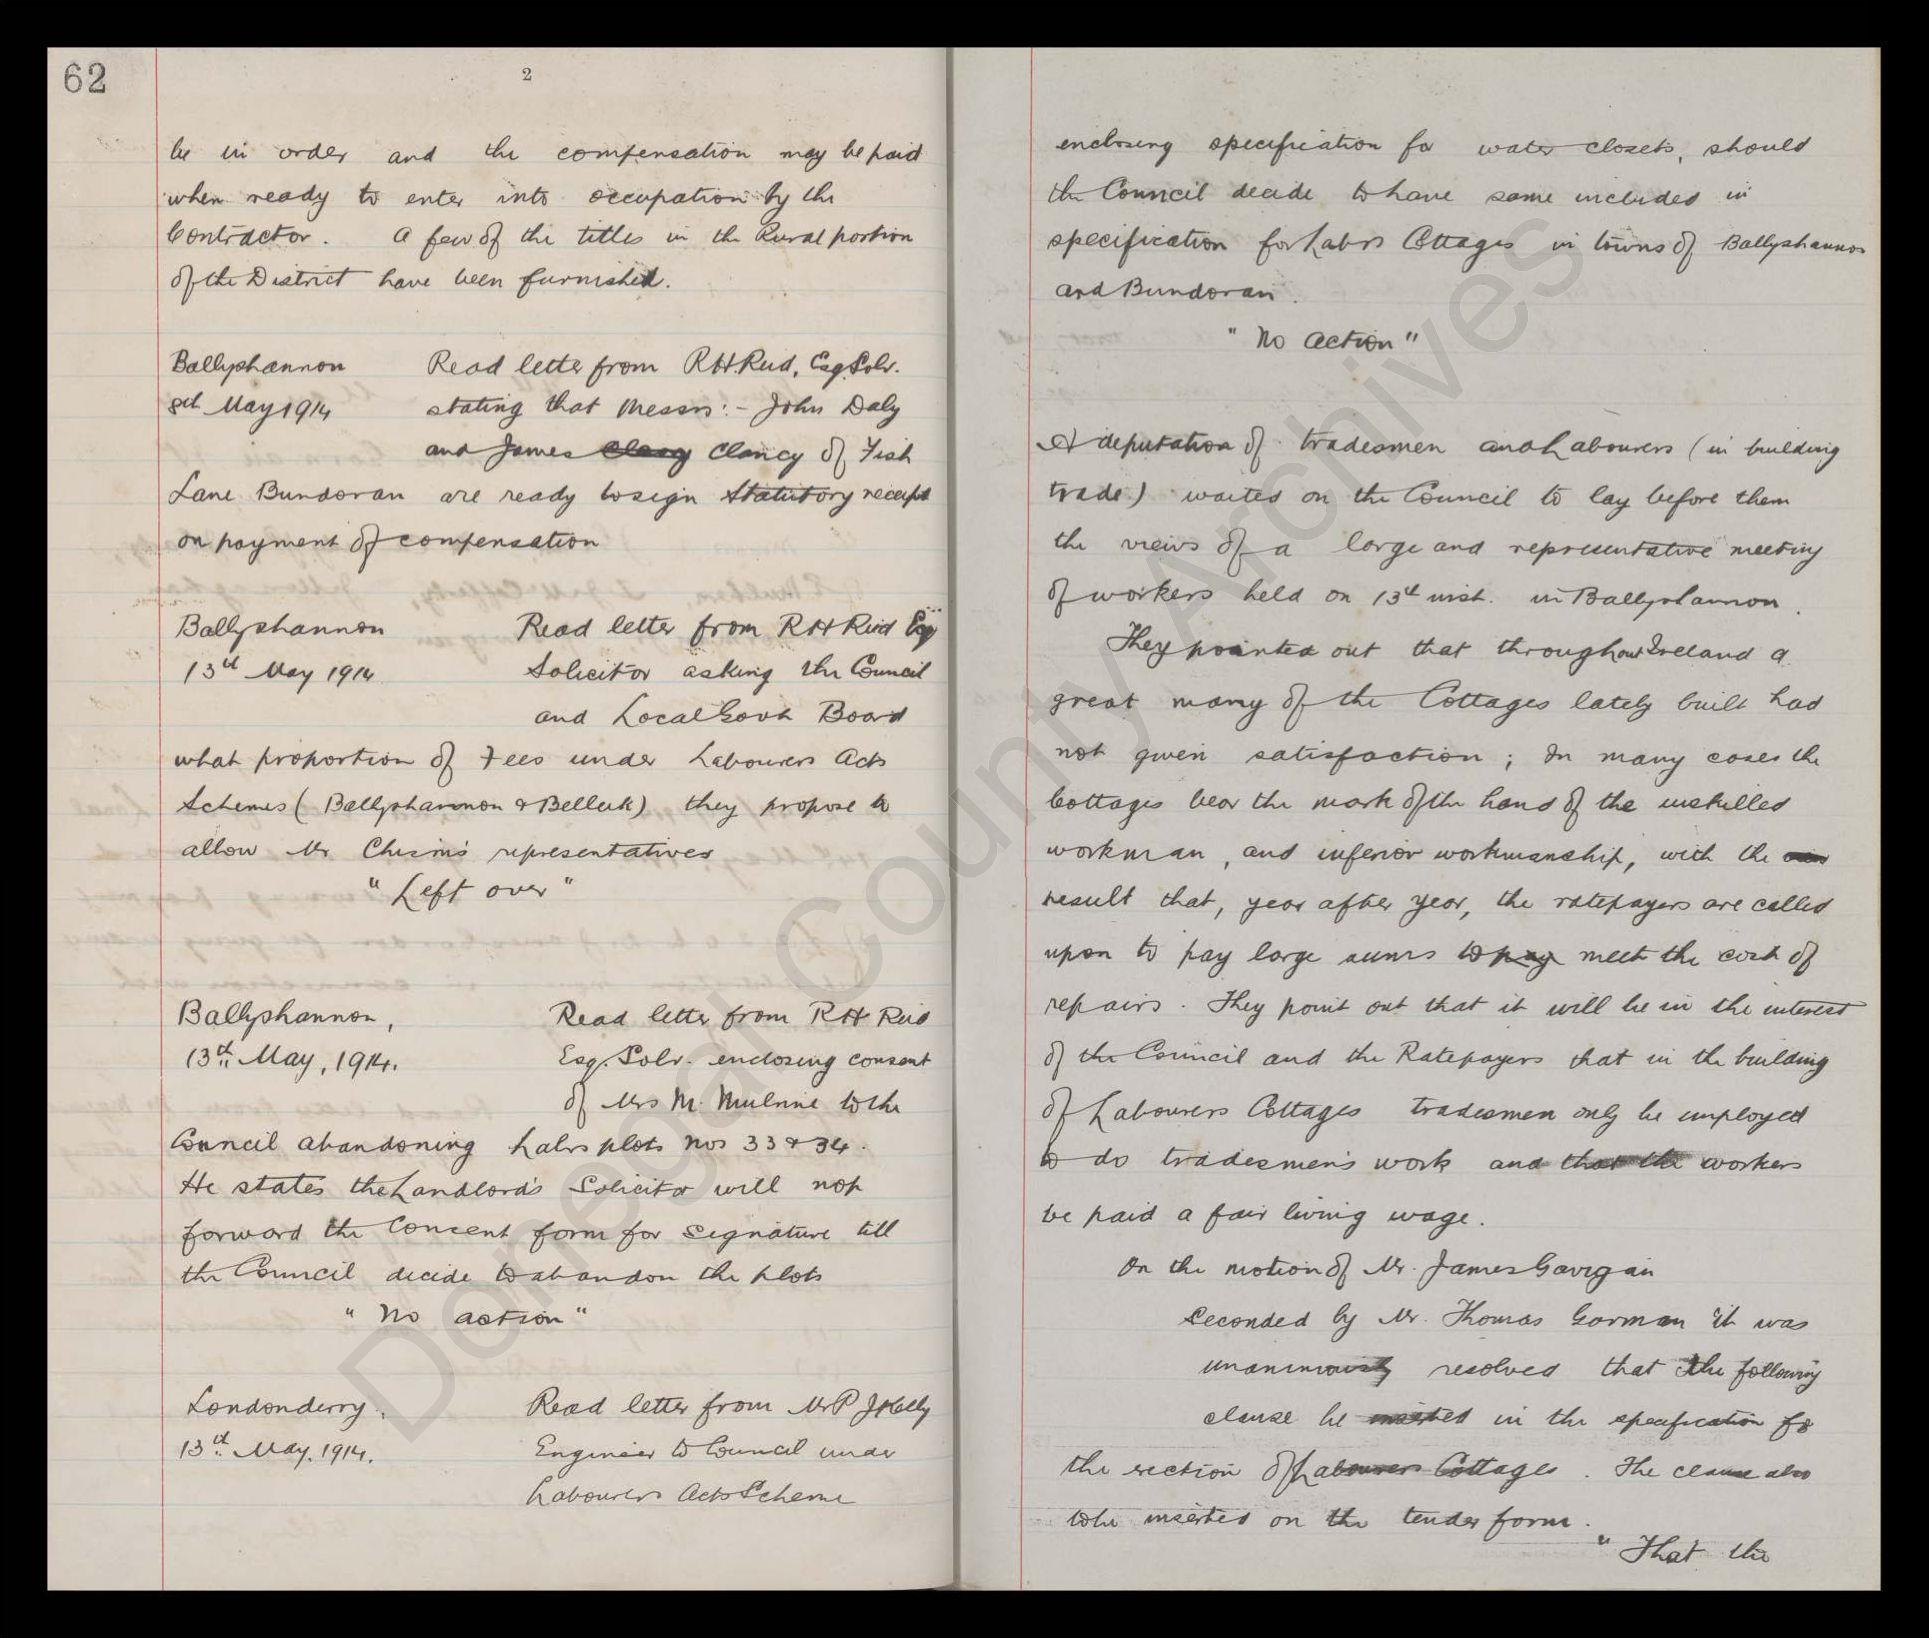 62
2
be in order and the compensation may be paid
when ready to enter into occupation by the
Contractor. A few of the titles in the Rural portion
of the District have been furnished.
Ballyshannon Read letter from R.H. Reid, Esq. Solr.
8th May 1914 stating that Messrs:- John Daly
and James Clancy of Fish
Lane Bundoran are ready to sign Statutory receipt
on payment of compensation
Ballyshannon Read letter from RH Reid Esq
13th May 1914 Solicitor asking the Council
and Local Govt Board
what proportion of Fees under Labourers Acts
Schemes (Ballyshannon & Belleek) they propose to
allow Mr Chism's representatives
"Left over"
Ballyshannon, Read letter from RH Reid
13th May, 1914. Esq. Solr. enclosing consent
of Mrs M. Mulrine to the
Council abandoning Labrs plots Nos 33 & 34.
He states the Landlord's Solicitor will not
forward the Consent form for signature till
the Council decide to abandon the plots
"No action"
Londonderry, Read letter from Mr P J Kelly
13th May, 1914. Engineer to Council under
Labourers Acts Scheme
enclosing specification for water closets, should
the Council decide to have same included in
specification for Labrs Cottages in towns of Ballyshannon
and Bundoran.
"No action"
A deputation of tradesmen and Labourers (in building
trade) waited on the Council to lay before them
the views of a large and representative meeting
of workers held on 13th inst. in Ballyshannon.
They pointed out that throughout Ireland a
great many of the Cottages lately built had
not given satisfaction; In many cases the
Cottages bear the mark of the hand of the unskilled
workman, and inferior workmanship, with the
result that, year after year, the ratepayers are called
upon to pay large sums to pay meet the cost of
repairs. They point out that it will be in the interest
of the Council and the Ratepayers that in the building
of Labourers Cottages tradesmen only be employed
to do tradesmen's work and that the workers
be paid a fair living wage.
On the motion of Mr. James Gavigan
Seconded by Mr. Thomas Gorman it was
unanimously resolved that the following
clause be inserted in the specification for
the erection of Labourers Cottages. The clause also
to be inserted on the tender form.
"That the
Donegal County Archives